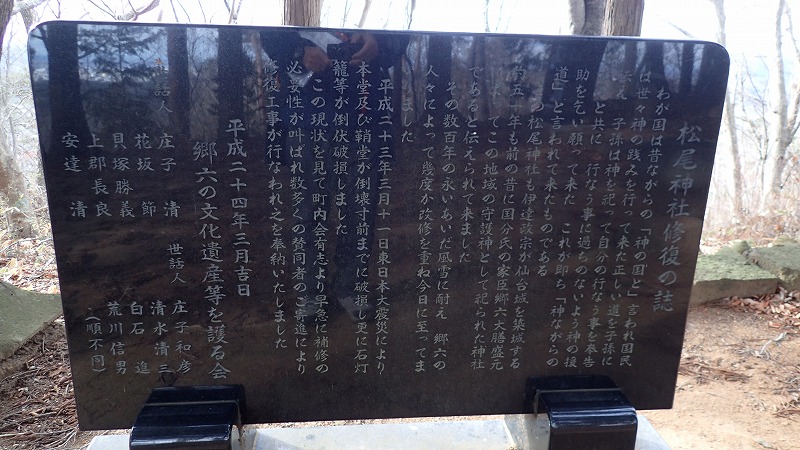 松尾神社修復の誌
わが国は昔ながらの「神の国」と言われ国民
は世々神の践みを行って来た正しい道を子孫に
伝え 子孫は神を祀って自分の行なう事を奉告
と共に 行なう事に過ちのないよう神の援
助を乞い願って来た これが即ち「神ながらの
道」と言われて来たものである
の松尾神社も伊達政宗が仙台城を築城する
五一年も前の昔に国分氏の家臣郷六大膳盛元
てこの地域の守護神として祀られた神社
であると伝えられて来ました
その数百年の永いあいだ風雪に耐え 郷六の
人々によって幾度か改修を重ね今日に至ってま
ました
平成二十三年三月十一日東日本大震災により
本堂及び鞘堂が倒壊寸前までに破損し更に石灯
籠等が倒伏破損しました
この現状を見て町内会有志より早急に補修の
必要性が叫ばれ数多くの賛同者のご寄進により
修復工事が行なわれ之を奉納いたしました
平成二十四年三月吉日
郷六の文化遺産等を護る会
世話人 庄子 清
花坂 節
貝塚勝義
上郡長良
安達 清
世話人 庄子和彦
清水清三
白石 進
荒川信男
(順不同)